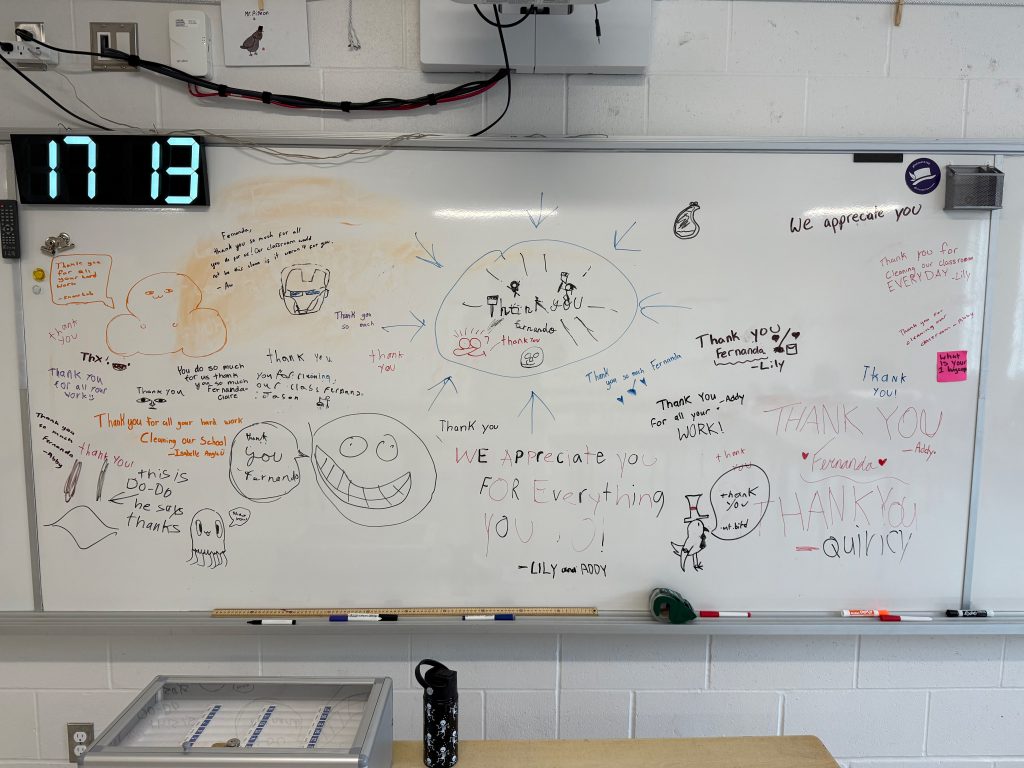 Mr. Pigeon
17 13
Fernanda,
thank you so much for all
you do for us! Our classroom would
not be this clean is it weren't for you.
We appreciate you
Thank you
for all
your hard
work
Thank you for
Cleaning our classroom
EVERYDAY -Lily
thank
you
Thank you
so much
Thank you
Fernando
thank you
Thank you
Fernanda
-Lily
Thank you for
cleaning our
classroom -Abby
Thx!
thank you
thank
you
What
is your
Thank you
for all your
work!!
You do so much
for us thank
you so much
Fernanda-
Claire
you for cleaning,
our class Fernand,
Jason
Thank you
Thank you so much Fernanda
Thank
you!
Thank You -Addy
For all your
WORK!
Thank you
so much
Fernanda
-Abby
Thank you for all your hard work
Cleaning our School
thank
you
Fernando
Thank you
THANK YOU
-Addy
Fernanda
thank you!
this is
Do-Do
he says
thanks
WE Appreciate you
FOR Everything
YOU
-LILY and ADDY
thank
you
thank
you
-mr.bird
THANK YOU
-QUIRICY
EXPO